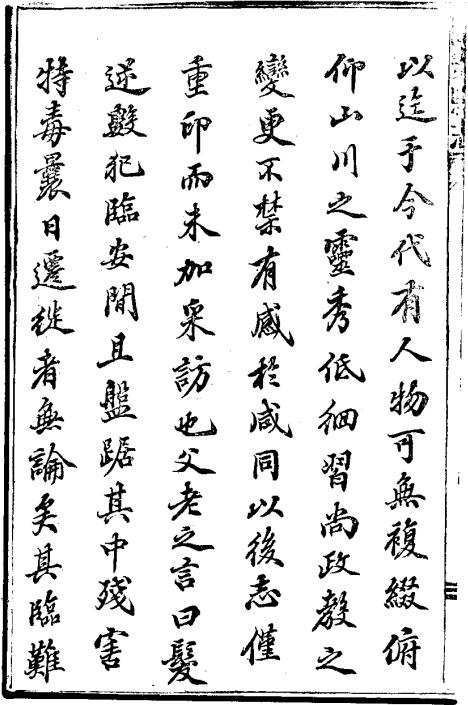 以迄于今代有人物可無複綴俯
仰山川之靈秀低徊習尚政教之
變更不禁有感於咸同以後志僅
重印而未加采訪也父老之言曰髮
逆數犯臨安間且盤踞其中殘害
特毒曩日遷徙者無論矣其臨難